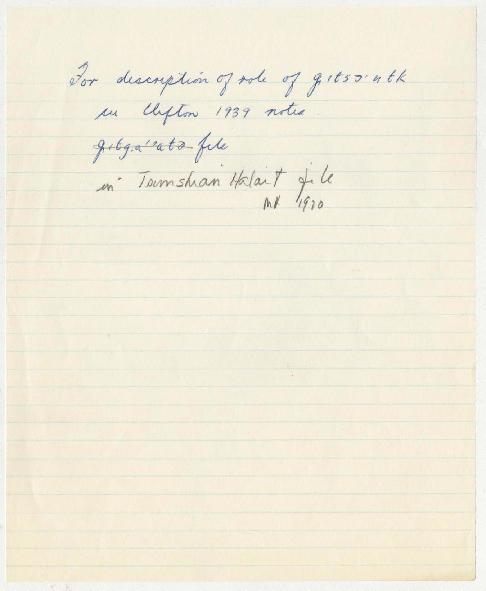 For description of role of g̣itsɔ·ntk
in Clifton 1939 notes
g̣itg̣a·'ata file
in Tsimshian Halait file
MH 1970